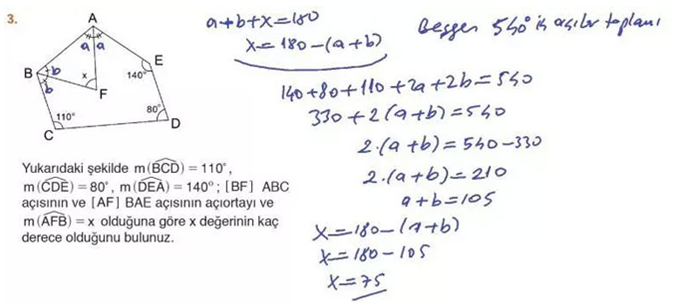 3.
A
a a
B
b
b
x
F
E
140°
80°
D
110°
C
Yukarıdaki şekilde m(BCD) = 110°,
m(CDE) = 80°, m(DEA) = 140° ; [BF] ABC
açısının ve [AF] BAE açısının açıortayı ve
m(AFB) = x olduğuna göre x değerinin kaç
derece olduğunu bulunuz.
a+b+x=180
x=180-(a+b)
Beşgen 540° iç açılar toplamı
140+80+110+2a+2b=540
330+2(a+b)=540
2.(a+b)=540-330
2.(a+b)=210
a+b=105
x=180-(a+b)
x=180-105
x=75